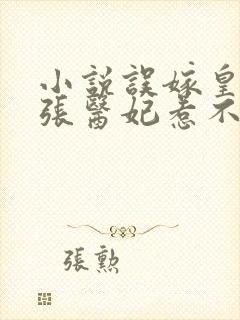 小説誤嫁皇
張醫妃惹不
張勲